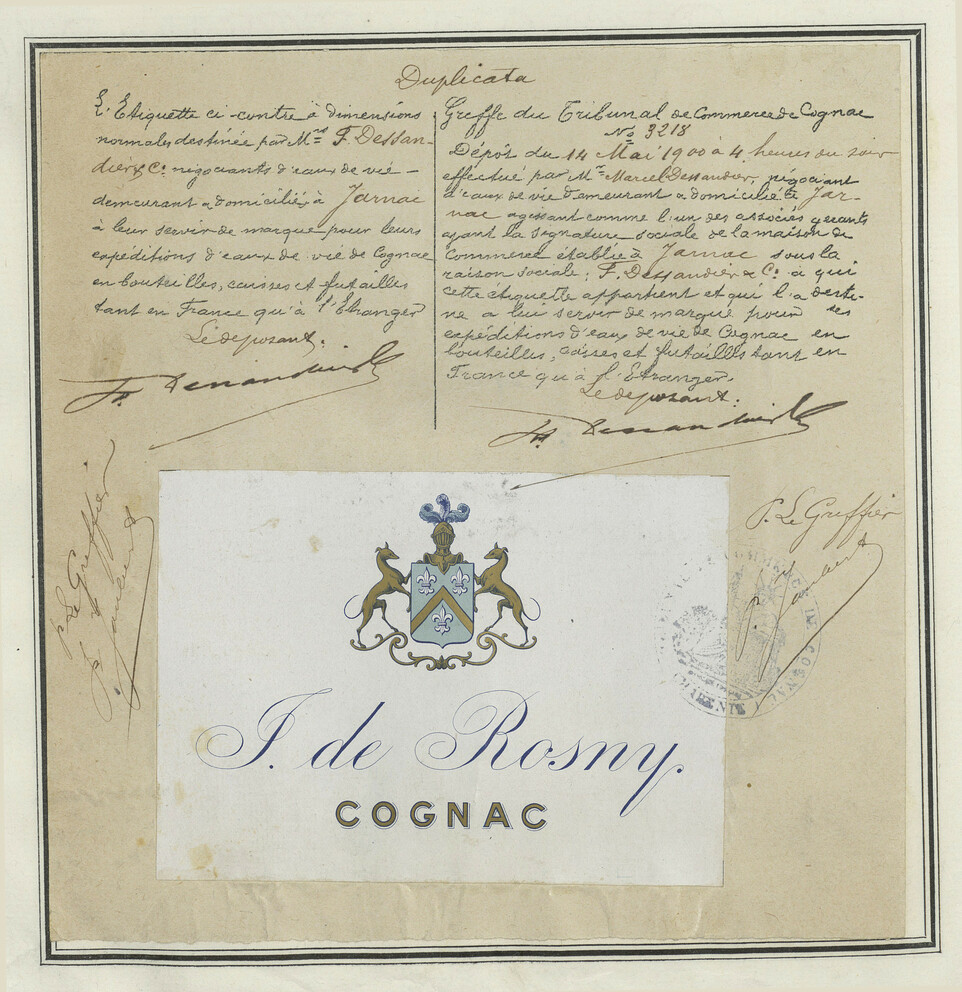 Duplicata
L'Etiquette ci-contre à dimensions
normales destinée par Mrs F. Dessan-
dier & Ce négociants d'eaux de vie -
demeurant & domiciliés à Jarnac
à leur servir de marque pour leurs
expéditions d'eaux de vie de Cognac
en bouteilles, caisses et futailles
tant en France qu'à l'Etranger
Le déposant.
Fr Dessandier & Ce
Greffe du Tribunal de Commerce de Cognac
No 3218
Dépôt du 14 Mai 1900 à 4 heures du soir
effectué par Mr Marcel Dessandier, négociant
d'eaux de vie demeurant & domicilié à Jar-
nac agissant comme l'un des associés gérants
ayant la signature sociale de la maison de
Commerce établie à Jarnac sous la
raison sociale: F. Dessandier & Ce à qui
cette étiquette appartient et qui l'a desti-
né à leur servir de marque pour ses
expéditions d'eaux de vie de Cognac en
bouteilles, caisses et futailles tant en
France qu'à l'Etranger.
Le déposant:
Fr Dessandier & Ce
p. Le Greffier
P. Le Greffier
TRIBUNAL DE COMMERCE DE COGNAC
CHARENTE
J. de Rosny.
COGNAC